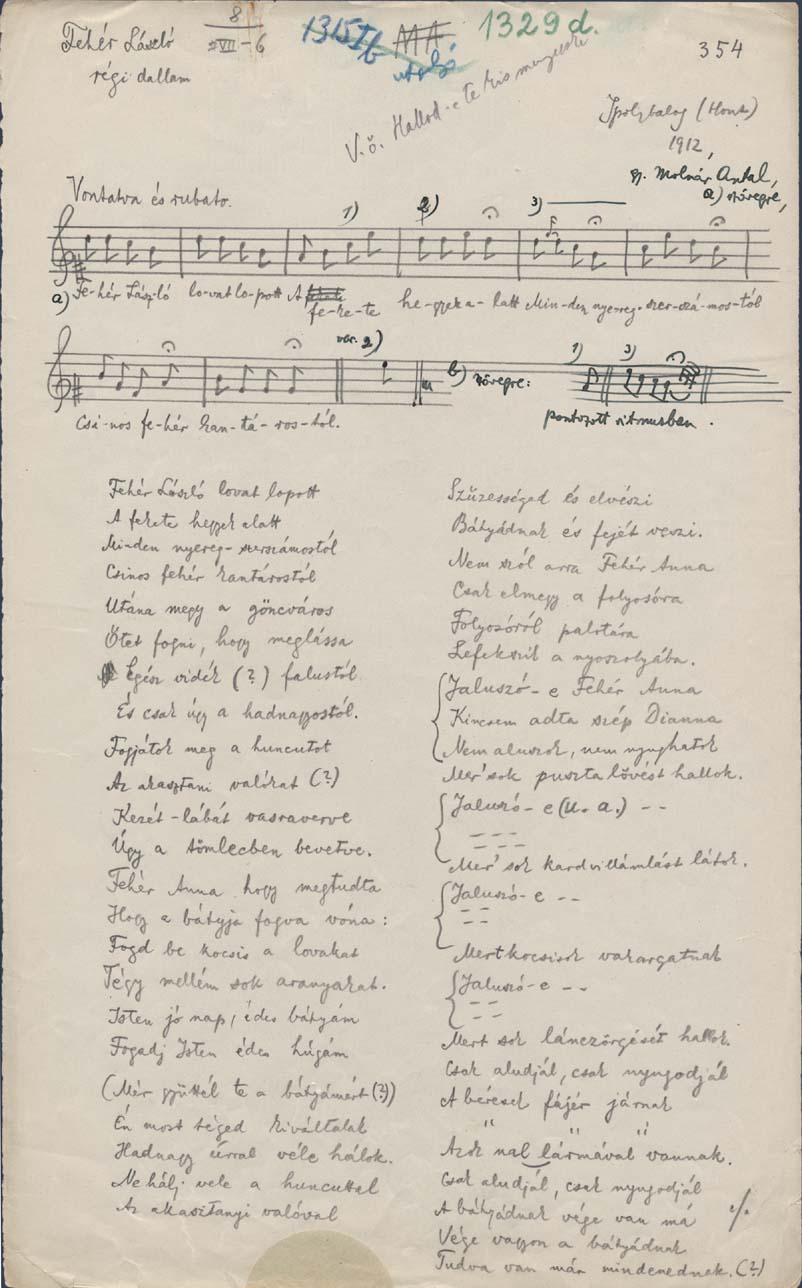 Fehér László
régi dallam
8
VII-6
1315
MA
utolsó
1329 d.
354
V.ö. Hallod-e te kis menyecske
Ipolybalog (Hont)
1912,
gy. Molnár Antal,
a) szövegre,
Vontatva és rubato.
1) 2) 3)
a) Fe-hér Lász-ló lo-vat lo-pott A fe-ke-te he-gyek a-latt Min-den nye-reg-szer-szá-mos-tól
var. 2) b) szövegre: 1) 3)
Csi-nos fe-hér kan-tá-ros-tól.
pontozott ritmusban.
Fehér László lovat lopott
A fekete hegyek alatt
Minden nyereg-szerszámostól
Csinos fehér kantárostól
Utána megy a göncváros
Őtet fogni, hogy meglássa
Egész vidék (?) falustól
És csak úgy a hadnagyostól.
Fogjátok meg a huncutot
Az akasztani valókat (?)
Kezét-lábát vasraverve
Úgy a tömlecben bevetve.
Fehér Anna hogy megtudta
Hogy a bátyja fogva vóna:
Fogd be kocsis a lovakat
Tégy mellém sok aranyakat.
Isten jó nap, édes bátyám
Fogadj Isten édes húgám
(Mér gyüttél te a bátyámért (?))
Én most téged kiváltalak
Hadnagy úrral véle hálok.
Ne hálj vele a huncuttal
Az akasztanyi valóval
Szüzességed és elvészi
Bátyádnak és fejét veszi.
Nem szól arra Fehér Anna
Csak elmegy a folyosóra
Folyosóról palotára
Lefekszik a nyoszolyába.
Jaluszó-e Fehér Anna
Kincsem adta szép Dianna
Nem aluszok, nem nyughatok
Mer' sok puszta lövést hallok.
Jaluszó-e (u.a.) --
Mer' sok kardvillámlást látok.
Jaluszó-e --
Mert kocsisok vakargatnak
Jaluszó-e --
Mert sok lánczörgését hallok.
Csak aludjál, csak nyugodjál
A béresek fájér járnak
Azok nal lármával vannak.
Csak aludjál, csak nyugodjál
A bátyádnak vége van má
Vége vagyon a bátyádnak
Tudva van már mindenednek. (?)